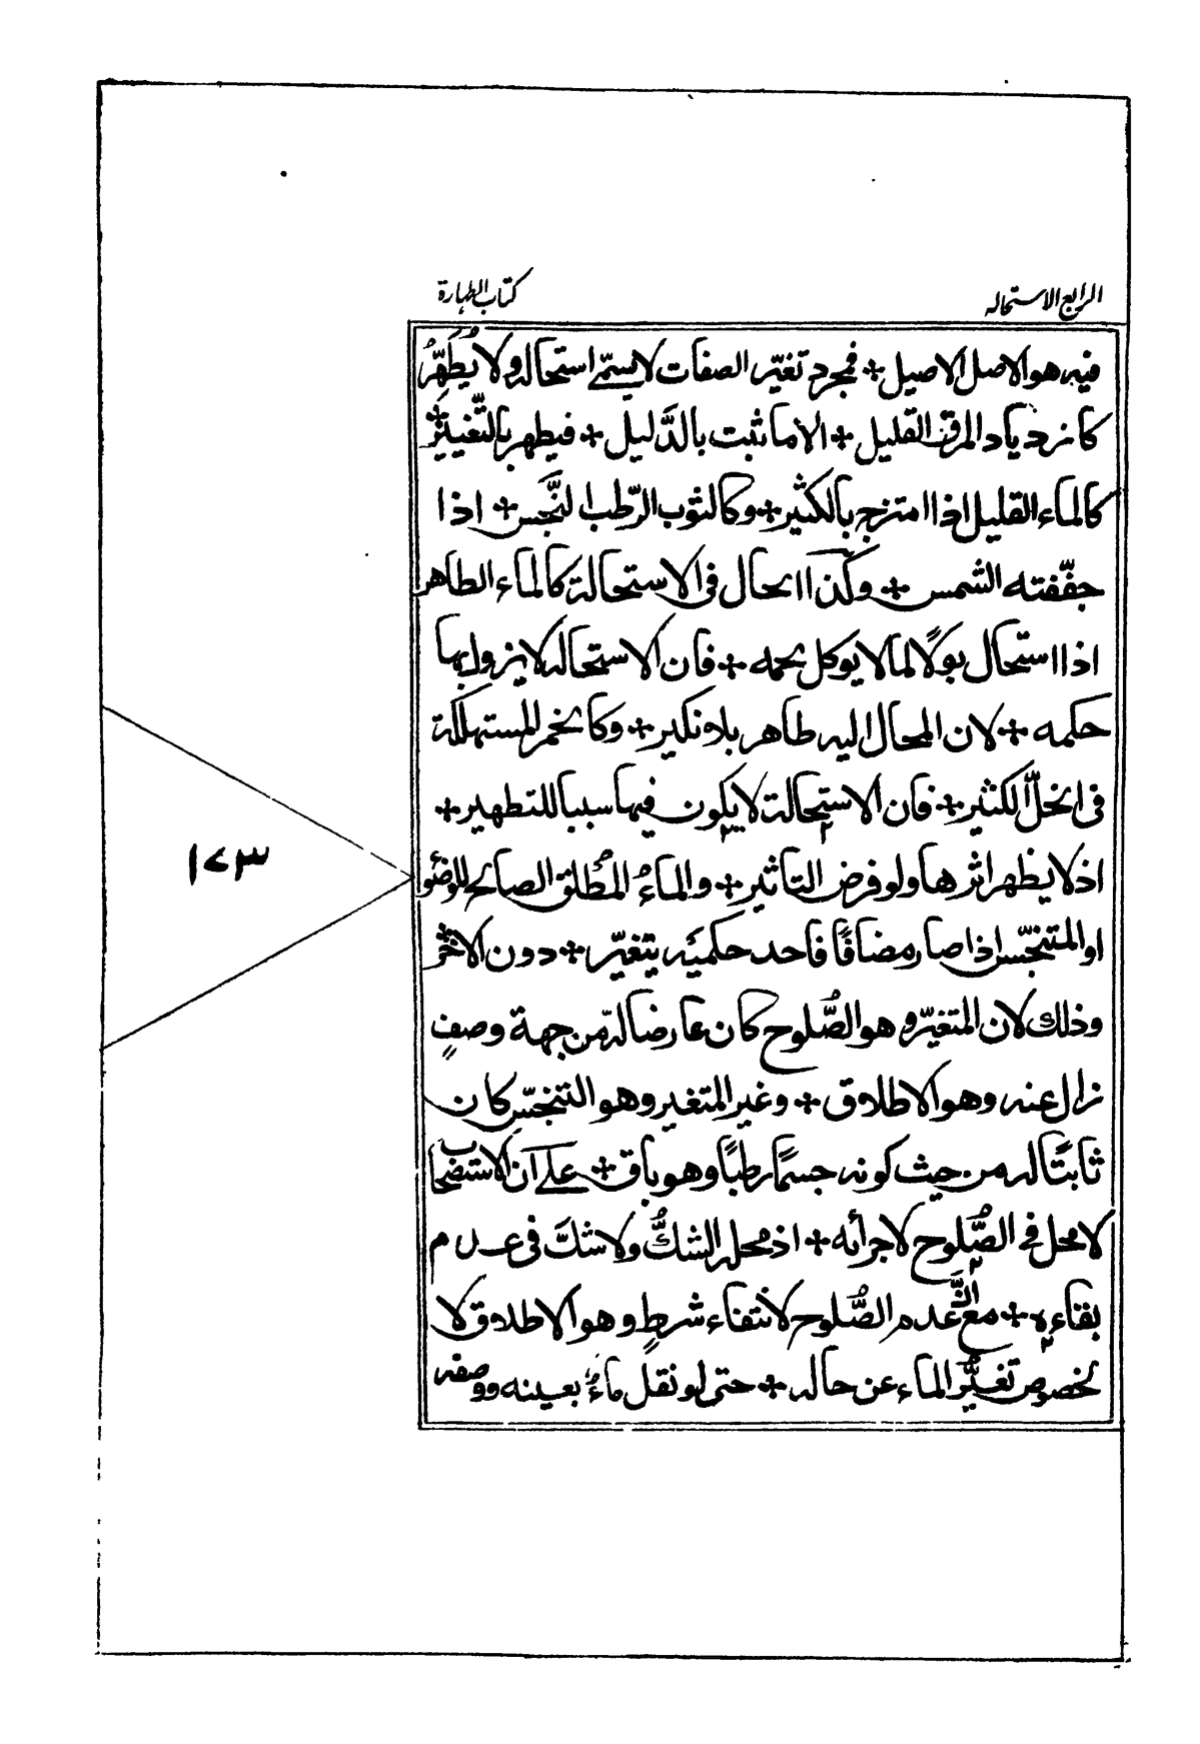 الرابع الاستحاله
كتاب الطهارة
فيه هو الاصل الاصيل + فمجرد تغيّر الصفات لا يسمّے استحاله ولا يُطَهِّرُ
كازدياد المرق القليل + الا ما ثبت بالدَّليل + فيطهر بالتَّغيير +
كالماء القليل اذا امتزج بالكثير + وكالثوب الرّطب النَّجَس + اذا
جفّفته الشمس + وكذا الحال فى الاستحالة كالماء الطاهر
اذا استحال بولًا لما لا يوكل لحمه + فان الاستحاله لا يزول بها
حكمه + لان المحال اليه طاهر بلا نكير + وكالخمر المستهلكة
فى الخلّ الكثير + فان الاستحالة لا يكون فيها سببا للتطهير +
اذ لا يظهر اثرها ولو فرض التاثير + والماءُ المُطلق الصالح للوضو
او المتنجّس اذا صار مضافًا فاحد حكميَه يتغيّر + دون الاخر +
وذلك لان المتغيّر و هو الصُّلوح كان عارضا له من جهة وصفٍ
زال عنه وهو الاطلاق + وغير المتغير وهو التنجّس كان
ثابتًا له من حيث كونه جسمًا رطبًا وهو باق + علے ان الاستصحاب
لا محل فے الصُّلوح لاجرائه + اذ محله الشكُّ ولا شكَّ فى عدم
بقاءه + مع انَّ عدم الصُّلوح لانتفاء شرطٍ وهو الاطلاق لا
لخصوص تغيُّر الماء عن حاله + حتى لو نقل ماءٌ بعينه ووصفه
١٧٣